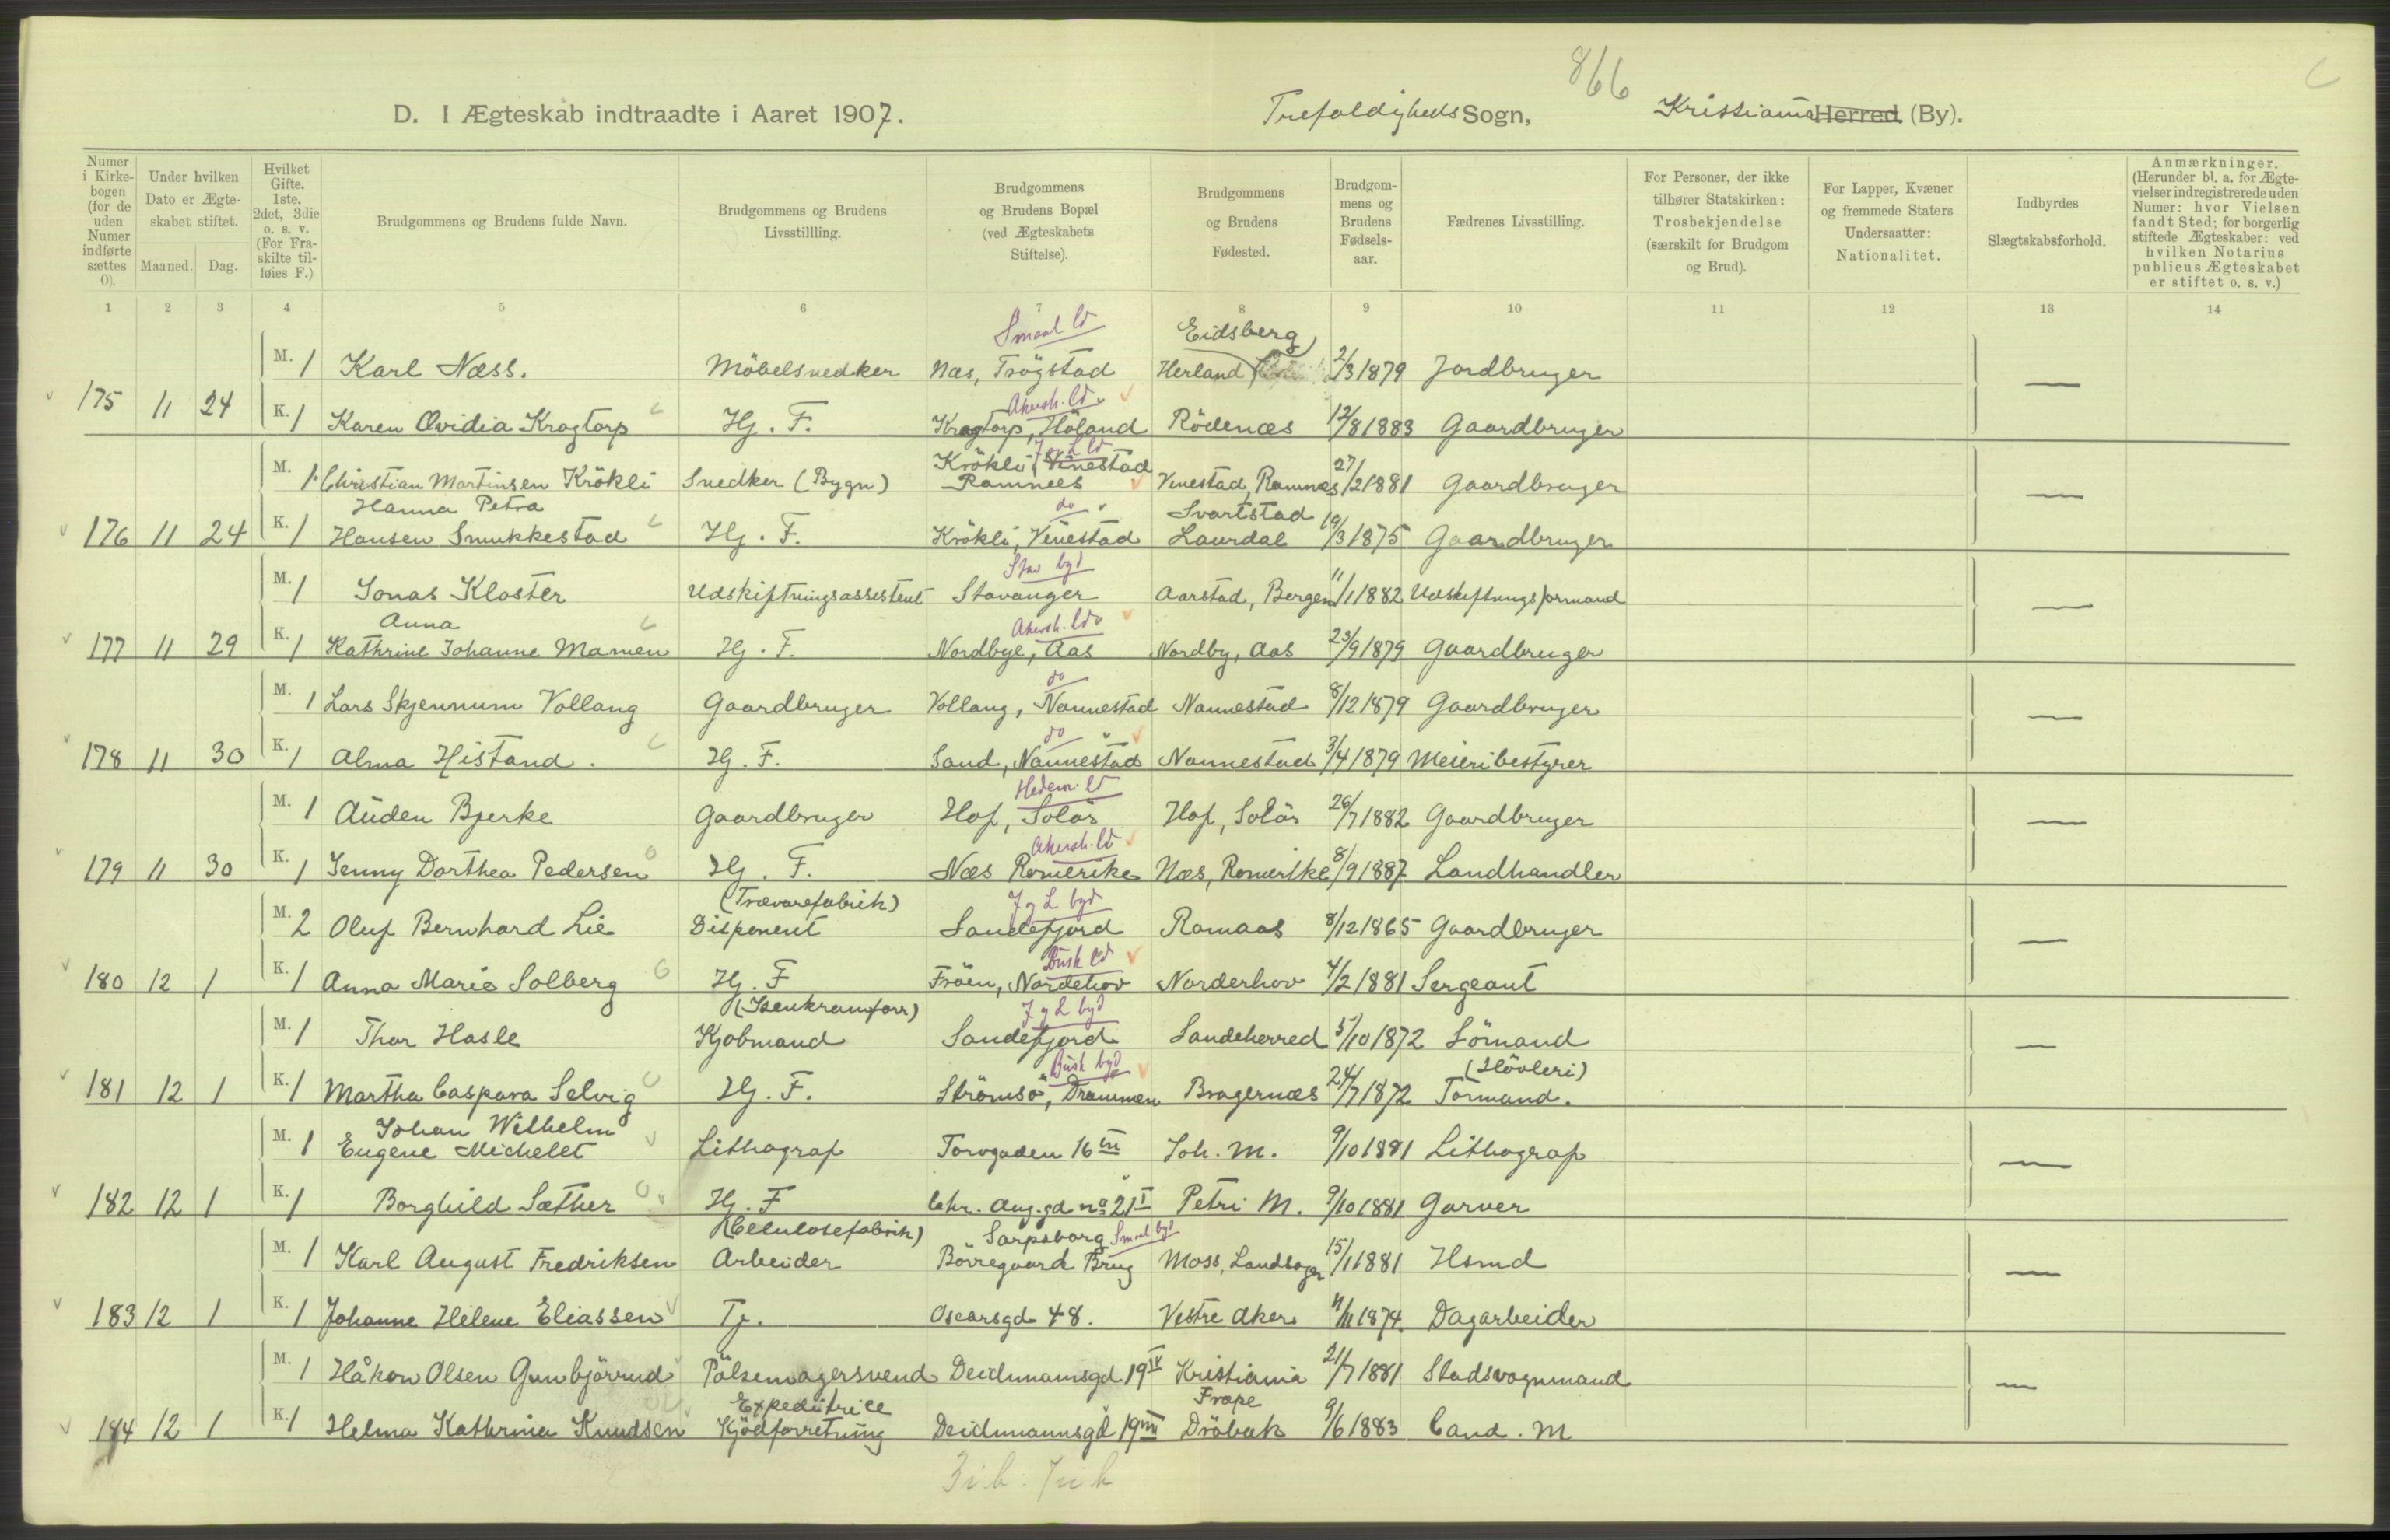 866
D. I Ægteskab indtraadte i Aaret 1907. Trefoldigheds Sogn, Kristiania Herred (By).
Numer i Kirkebogen (for de uden Numer indførte sættes 0).
Under hvilken Dato er Ægteskabet stiftet.
Maaned. Dag.
Hvilket Gifte. 1ste, 2det, 3die o. s. v. (For Fraskilte tilføies F.)
Brudgommens og Brudens fulde Navn.
Brudgommens og Brudens Livsstillling.
Brudgommens og Brudens Bopæl (ved Ægteskabets Stiftelse).
Brudgommens og Brudens Fødested.
Brudgommens og Brudens Fødselsaar.
Fædrenes Livsstilling.
For Personer, der ikke tilhører Statskirken: Trosbekjendelse (særskilt for Brudgom og Brud).
For Lapper, Kvæner og fremmede Staters Undersaatter: Nationalitet.
Indbyrdes Slægtskabsforhold.
Anmærkninger. (Herunder bl. a. for Ægtevielser indregistrerede uden Numer: hvor Vielsen fandt Sted; for borgerlig stiftede Ægteskaber: ved hvilken Notarius publicus Ægteskabet er stiftet o. s. v.)
1 2 3 4 5 6 7 8 9 10 11 12 13 14
Smaal ld Eidsberg
M. 1 Karl Næss. Möbelsnedker Næs, Trögstad Herland 2/3 1879 Jordbruger —
Akersh. ld
175 11 24 K. 1 Karen Ovidia Kragtorp Hj. F. Kragtorp, Höland Rödenæs 12/8 1883 Gaardbruger
J & L ld
Krökli, Vinestad
M. 1 Christian Martinsen Krökli Snedker (Bygn) Ramnees Vinestad, Ramnæs 27/2 1881 Gaardbruger —
Hanna Petra do Svartstad
176 11 24 K. 1 Hansen Smukkestad Hj. F. Krökli, Vinestad Laurdal 19/3 1875 Gaardbruger
Stav byd
M. 1 Jonas Kloster Udskiftningsassistent Stavanger Aarstad, Bergen 11/1 1882 Udskiftningsformand —
Anna Akersh. ld
177 11 29 K. 1 Kathrine Johanne Mamen Hj. F. Nordbye, Aas Nordby, Aas 23/9 1879 Gaardbruger
do
M. 1 Lars Skjennum Vollang Gaardbruger Vollang, Nannestad Nannestad 8/12 1879 Gaardbruger —
do
178 11 30 K. 1 Alma Histand. Hj. F. Sand, Nannestad Nannestad 3/4 1879 Meieribestyrer
Hedem. ld
M. 1 Auden Bjerke Gaardbruger Hof, Solör Hof, Solör 26/7 1882 Gaardbruger —
Akersh. ld
179 11 30 K. 1 Jenny Dorthea Pedersen Hj. F. Næs Romerike Næs, Romerike 8/9 1887 Landhandler
(Trævarefabrik) J & L byd
M. 2 Oluf Bernhard Lie Disponent Sandefjord Ramaas 8/12 1865 Gaardbruger —
Busk ld
180 12 1 K. 1 Anna Marie Solberg Hj. F Fröen, Nordehov Norderhov 4/2 1881 Sergeant
(Isenkramforr) J & L byd
M. 1 Thor Hasle Kjøbmand Sandefjord Sandeherred 5/10 1872 Sömand —
Busk byd (Hövleri)
181 12 1 K. 1 Martha Caspara Selvig Hj. F. Strömsö, Drammen Bragernæs 24/7 1872 Formand.
Johan Wilhelm
M. 1 Eugene Michelet Lithograf Torvgaden 16 III Joh. M. 9/10 1881 Lithograf —
182 12 1 K. 1 Borghild Sæther Hj. F Chr. Aug.gd no 21 I Petri M. 9/10 1881 Garver
(Cellulosefabrik) Sarpsborg Smaal byd
M. 1 Karl August Fredriksen Arbeider Börregaard Brug Moss, Landsogn 15/1 1881 Hsmd —
183 12 1 K. 1 Johanne Helene Eliassen Tj. Oscarsgd 48. Vestre Aker 4/11 1874. Dagarbeider
M. 1 Håkon Olsen Gunbjörrud Pölsemagersvend Deichmansgd 19 IV Kristiania 21/7 1881 Stadsvognmand —
Expeditrice Frope
184 12 1 K. 1 Helma Kathrine Knudsen Kjödforretning Deichmannsgd 19 IV Dröbak 9/6 1883 Cand. M